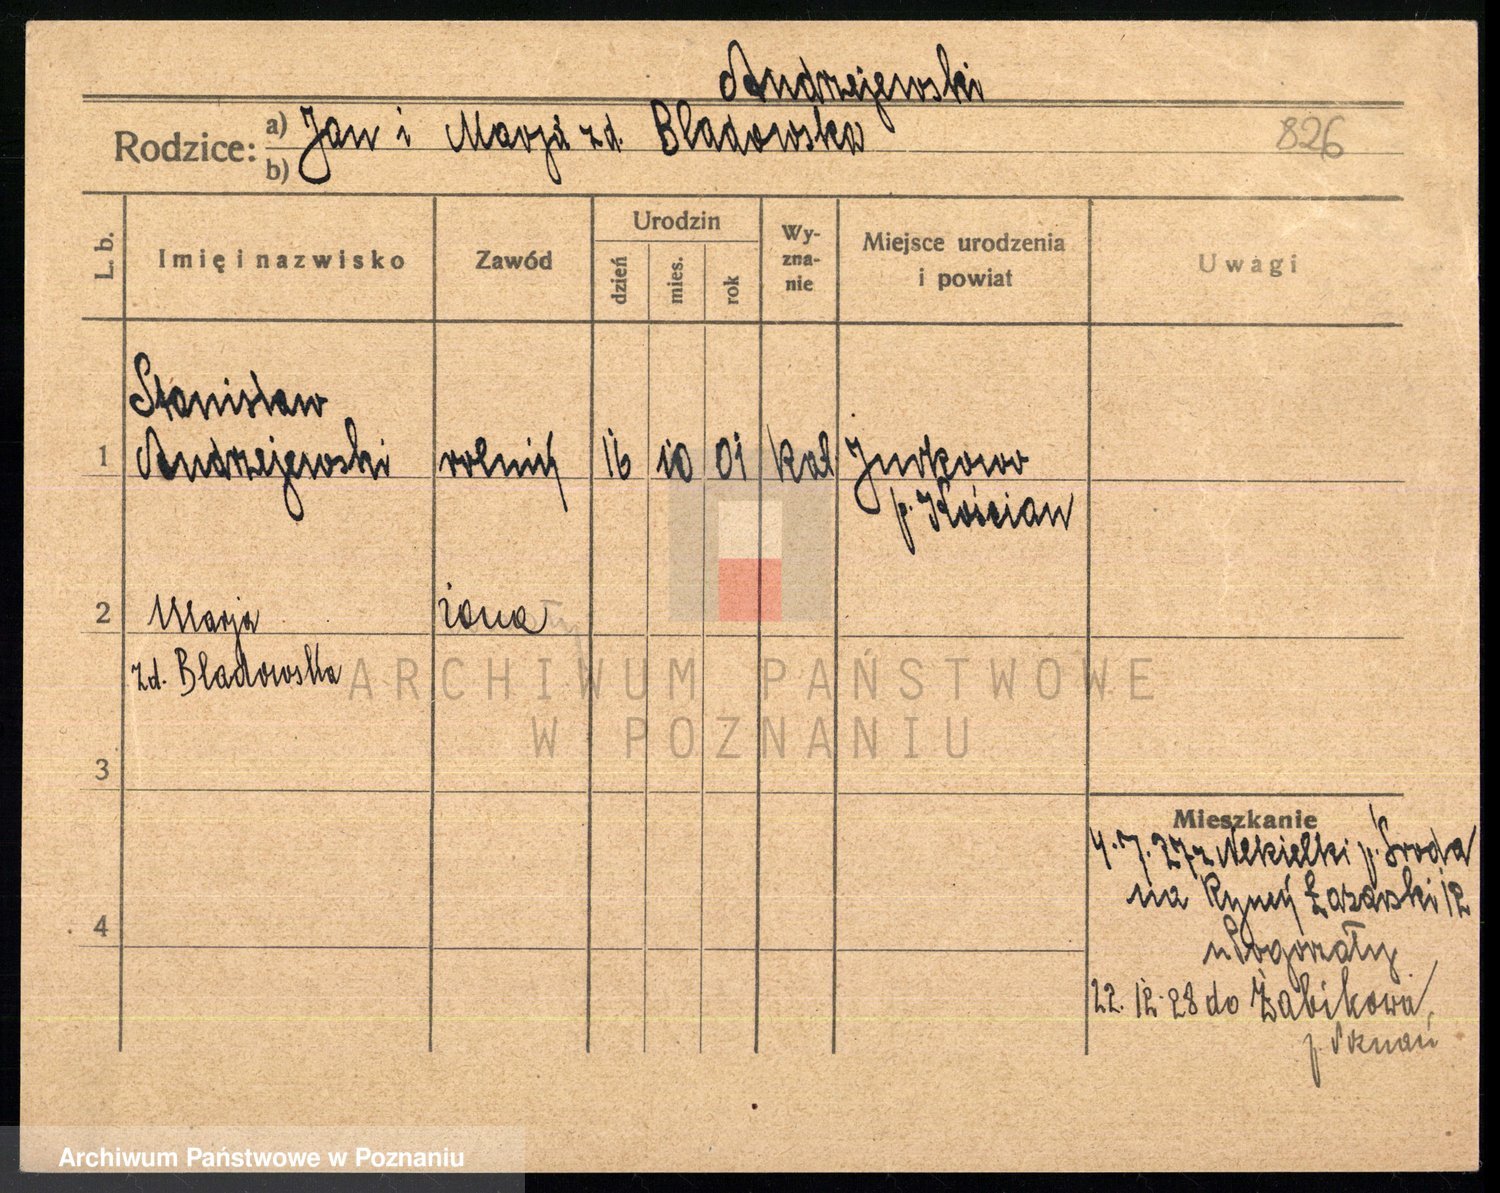 Andrzejewski
Rodzice: a) Jan i Marja zd. Bladowska
b)
826
L. b.
Imię i nazwisko
Zawód
Urodzin
dzień
mies.
rok
Wy-
zna-
nie
Miejsce urodzenia
i powiat
Uwagi
Stanisław
1 Andrzejewski rolnik 16 10 01 kat Jurkowo
p. Kościan
2 Marja żona
zd. Bladowska
ARCHIWUM PAŃSTWOWE
W POZNANIU
3
4
Mieszkanie
4.7.27 z Nekielki p. Środa
na Rynek Łazarski 12
u Pogorzały
22.12.28 do Żabikowa
p. Poznań
Archiwum Państwowe w Poznaniu